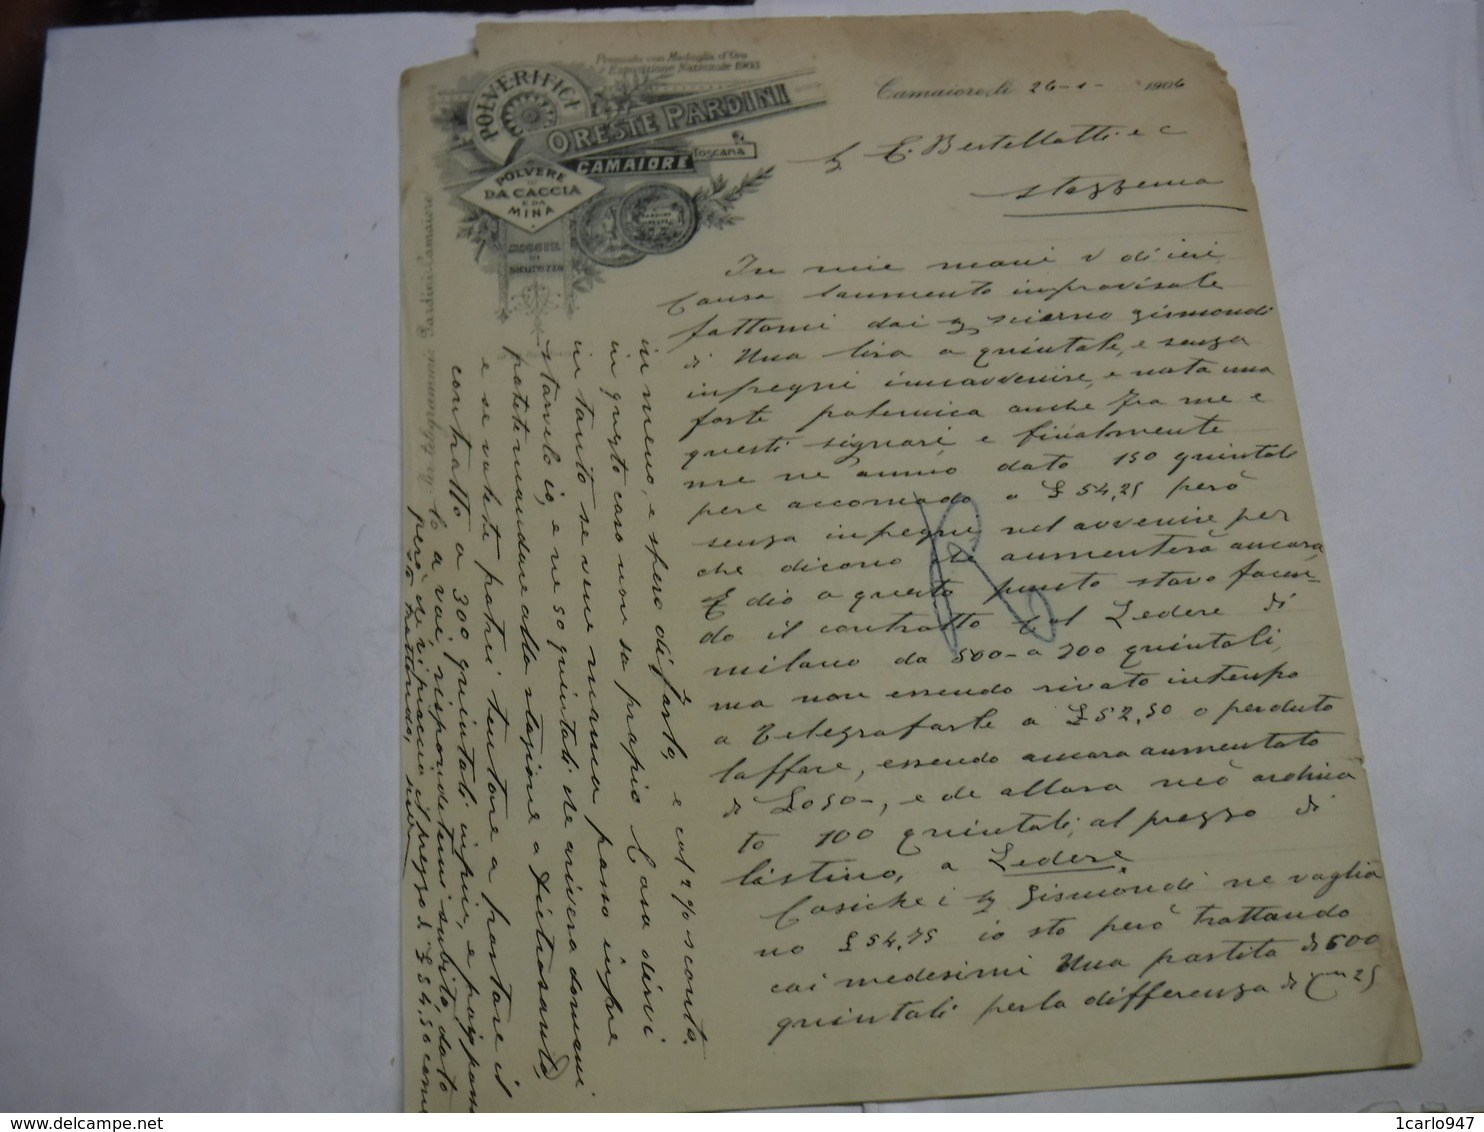 Premiato con Medaglia d'Oro
Esposizione Nazionale 1903
POLVERIFICI
ORESTE PARDINI
CAMAIORE
Toscana
POLVERE
DA CACCIA
E DA
MINA
di
sicurezza
Pardini-Camaiore
Camaiore, li 26-1- 1906
C. Bertellotti e C
Stazzema
In mie mani v di ieri
Causa laumento improvisate
fattomi dai Gismondi
di Una lira a quintale, e senza
inpegni innavvenire, e nata una
forte polemica anche fra me e
questi signori, e finalmente
me ne anno dato 150 quintali
per accomodo a £ 54,25 però
senza inpegni nel avvenire per
che dicono che aumenterà ancora,
E dio a questo punto stavo facen-
do il contratto col Ledere di
milano da 500- a 200 quintali,
ma non essendo rivato intenpo
a telegrafarle a £ 52,50 o perduto
laffare, essendo ancora aumentato
di £ 0,50-, e de allora neò ordina
to 100 quintali, al prezzo di
listino, a Ledere
Cosiche i Gismondi ne vaglia
no £ 54,75 io sto però trattando
coi medesimi Una partita di 600
quintali per la differenza di Cmi 25
in meno, e spero di farla, e col 2% sconto.
in questo caso non so proprio Cosa dirvi
in tanto se vene mana posso inpre
starvelo io, e ne 50 quintali che arivera domani
potete mandare alla stazione a Pietrasanta,
e se volete potrei tentare a portare il
contratto a 300 quintali
lo a voi, rispondetemi subito, dato
però che vi piaccia il prezzo di £ 54,50 come
sto trattando,